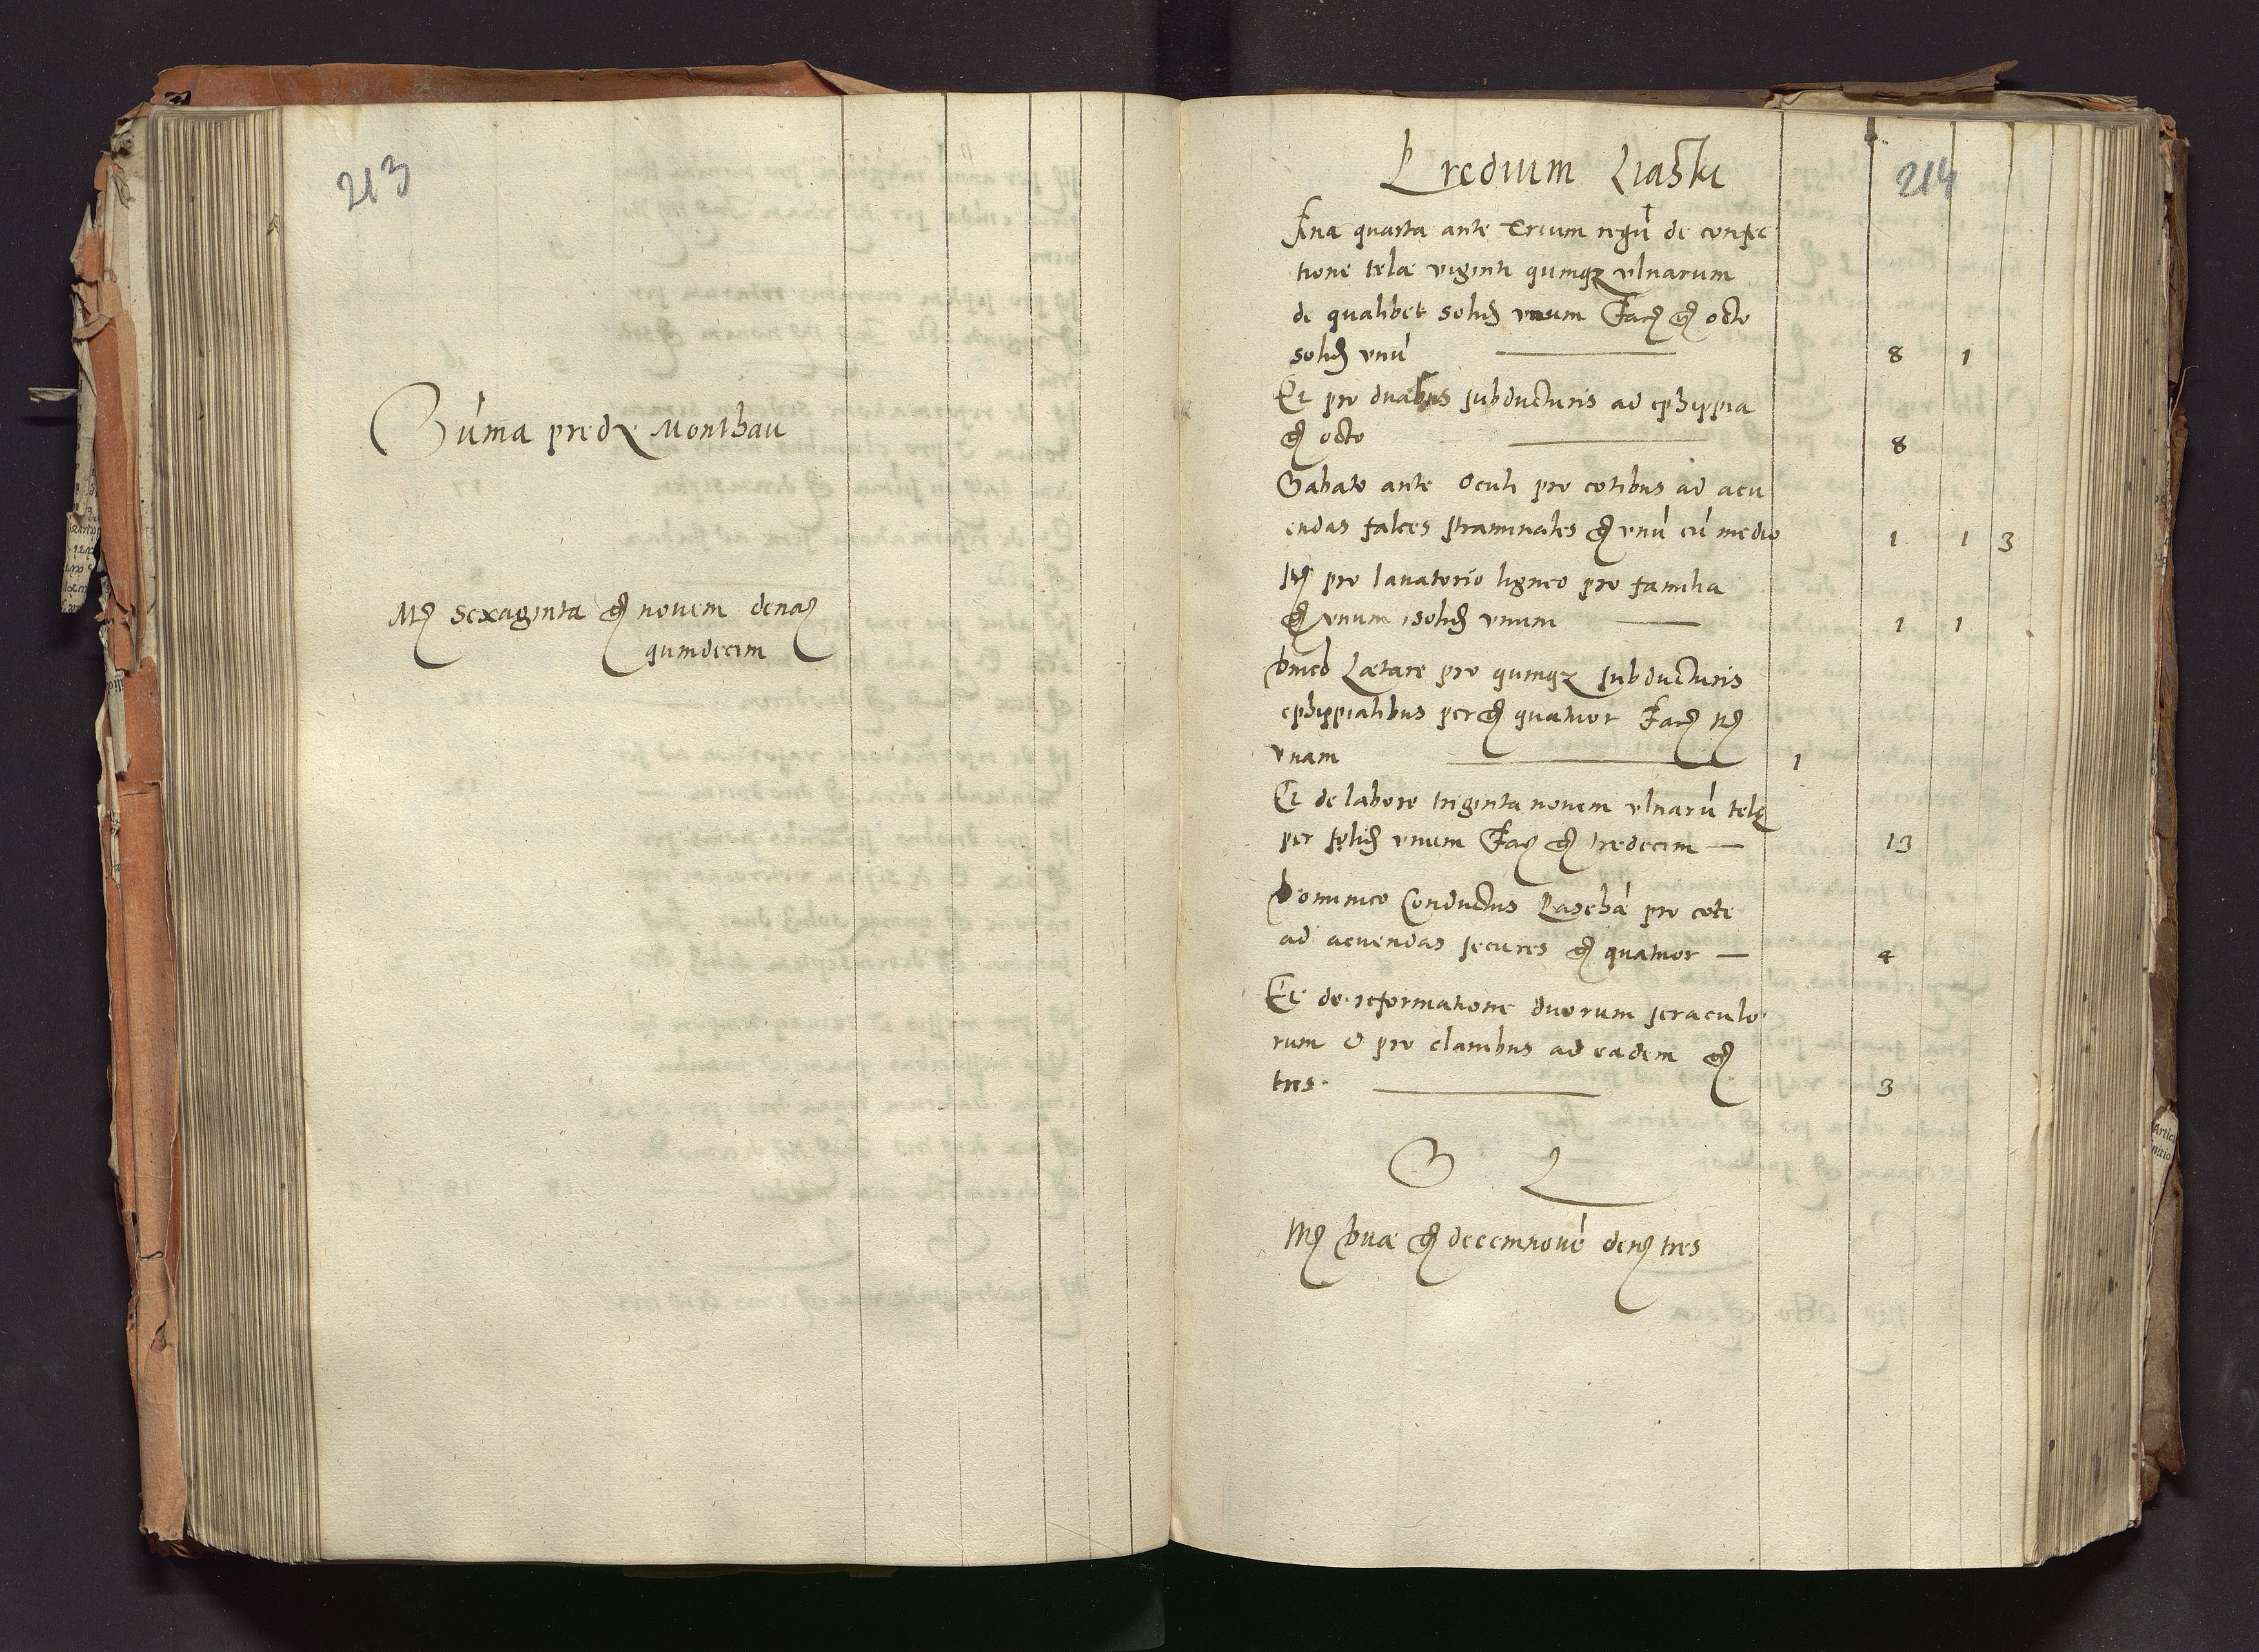 213
Sum̄a predę Monthau
Mȝ sexaginta gȝ novem denaȝ
quindecim
214
Predium Liaski
Fna quarta ante Trium regū de confec
tione telæ viginti quinqȝ vlnarum
de qualibet solidȝ vnum Facȝ gȝ octo
solidȝ vnū 8 1
Et pro duabus subducturis ad ephippia
gȝ octo 8
Sabato ante Oculi pro cotibus ad acu
endas falces straminales gȝ vnū cū medio 1 1 3
Itȝ pro lavatorio ligneo pro familia
gȝ vnum solidȝ vnum 1 1
Dnico Lætare pro quinqȝ subducturis
ephippialibus per gȝ quatuor Facȝ mȝ
vnam 1
Et de labore triginta novem vlnarū telę
per solidȝ vnum Facȝ gȝ tredecim 13
Dominico Conductus Paschæ pro cote
ad acuendas secures gȝ quatuor 4
Et de reformatione duorum seraculo
rum & pro clavibus ad eadem gȝ
tres 3
S L
Mȝ duæ gȝ decemnovē denȝ tres